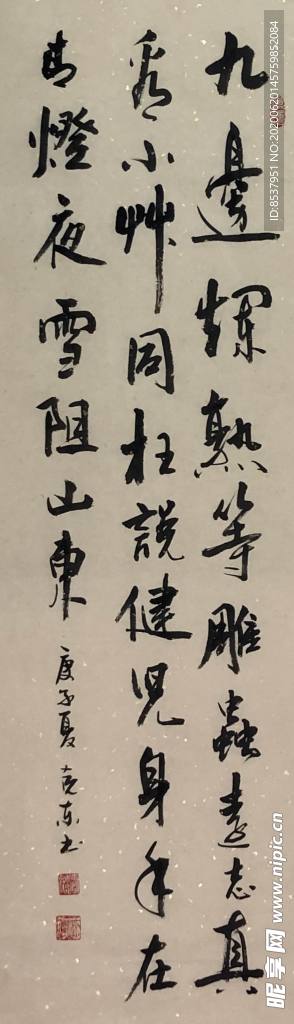 九邊爛熟等雕蟲遠志真
看小艸同枉說健兒身手在
青燈夜雪阻山東
庚子夏克东书
ID:8537951 NO:20200620145759852084
昵享网 www.nipic.cn